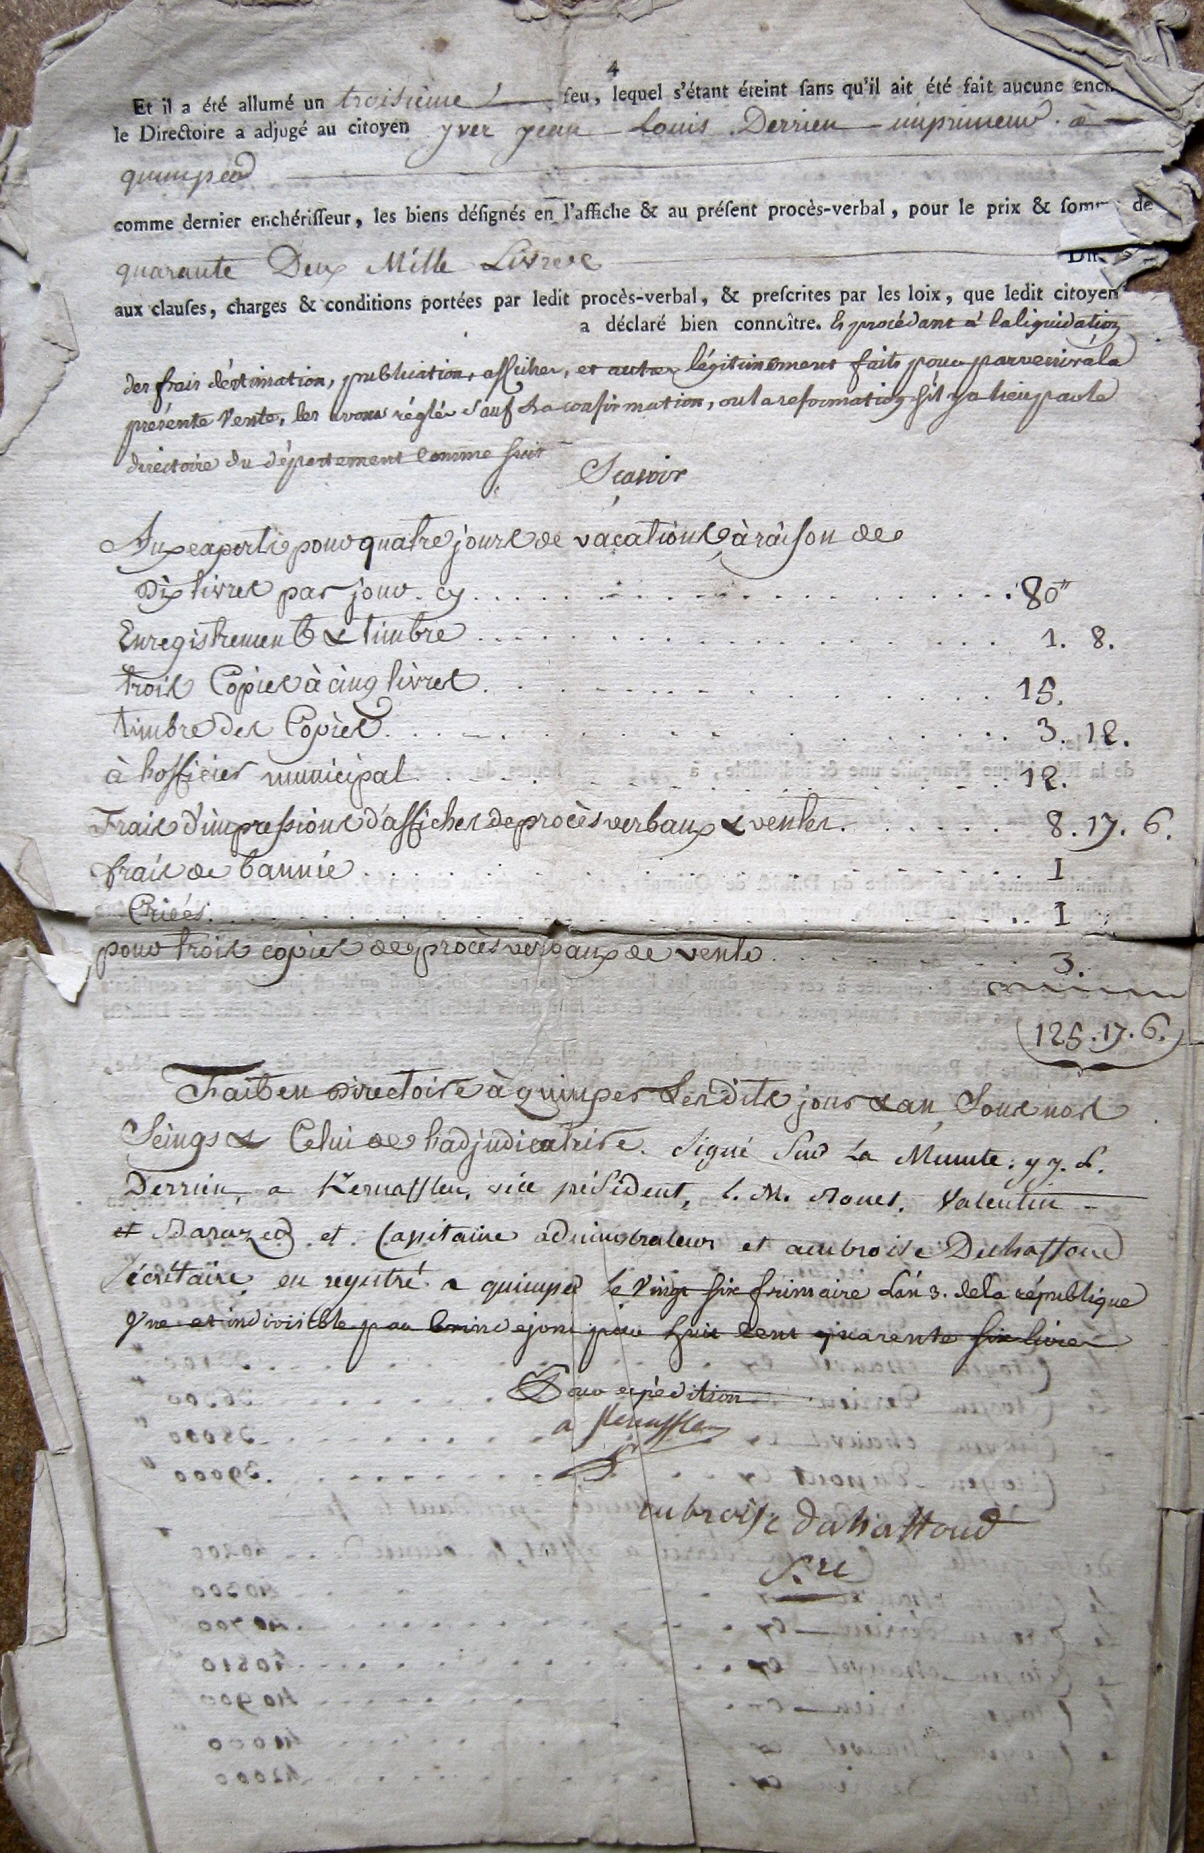 4
Et il a été allumé un troisième feu, lequel s'étant éteint sans qu'il ait été fait aucune ench
le Directoire a adjugé au citoyen yves jean Louis Derrien imprimeur à
quimper
comme dernier enchérisseur, les biens désignés en l'affiche & au présent procès-verbal, pour le prix & somme de
quarante Deux Mille Livres
aux clauses, charges & conditions portées par ledit procès-verbal, & prescrites par les loix, que ledit citoyen
a déclaré bien connoître. Et procédant à la liquidation
des frais d'estimation, publication, affiches, et autres légitimement faits pour parvenir à la
présente vente, les avons réglés sauf la confirmation, ou la reformation s'il y a lieu par le
directoire du département comme suit
Scavoir
Aux experts pour quatre jours de vacations à raison de
Dix livres par jour. cy 80"
Enregistrement & timbre 1. 8.
trois Copies à cinq livres 15.
timbre des Copies 3. 12.
à l'officier municipal 12.
Frais d'impressions d'affiches de procès verbaux & ventes. 8. 17. 6.
frais de bannie 1
Criées 1
pour trois copies de procès verbaux de vente 3.
125. 17. 6.
Fait en Directoire à quimper Lesdits jour & an, Sous nos
Seings & Celui de l'adjudicataire. Signé Sur La Minute: y. j. L.
Derrien, a Kernafflen, vice président, L. M. Valentin
et et Capitaine administrateurs et ambroise Duhaffond
sécrétaire. enregistré a quimper le vingt six frimaire L'an 3. de la république
Une et indivisible par pour huit cent quarante six livres
Pour expédition
a Kernafflen
ambroise Duhaffond
S.re